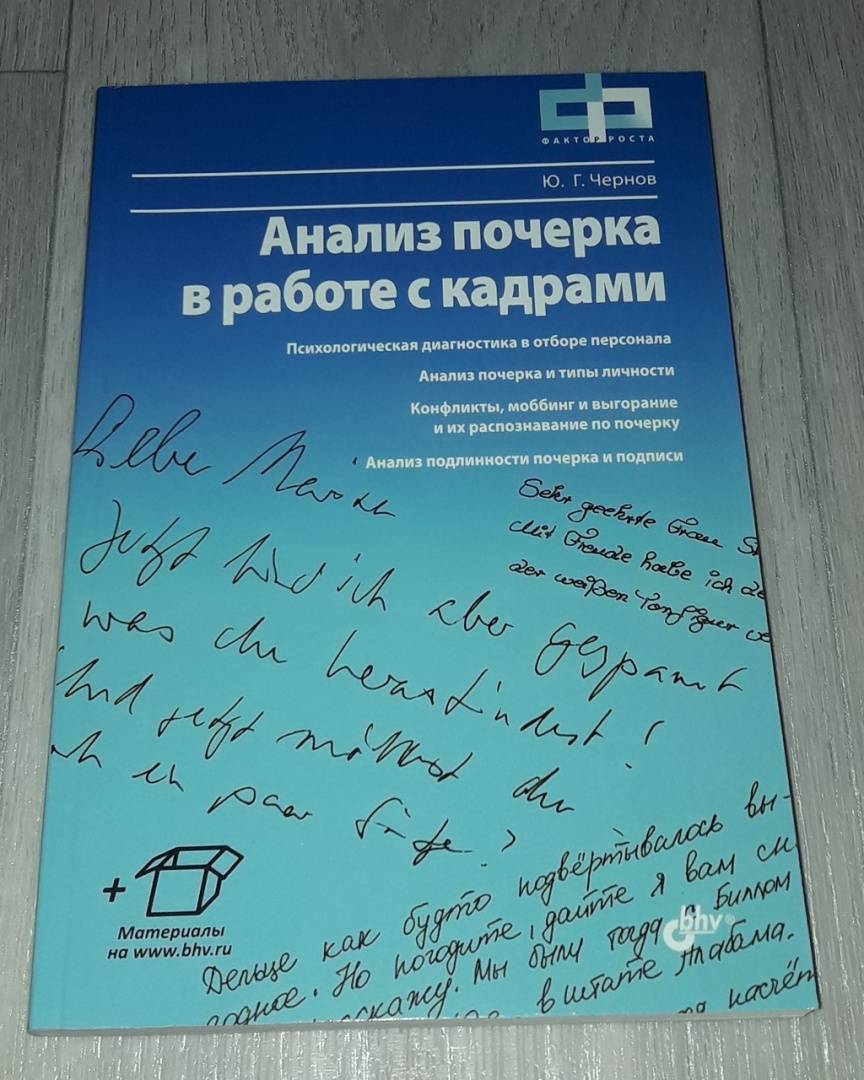 ФАКТОР РОСТА
Ю. Г. Чернов
Анализ почерка
в работе с кадрами
Психологическая диагностика в отборе персонала
Анализ почерка и типы личности
Конфликты, моббинг и выгорание
и их распознавание по почерку
Анализ подлинности почерка и подписи
Liebe
Sehr geehrte Frau
mit Freude habe ich
der weißen
Jetzt bin ich aber gespannt
was du herausfindest!
Und jetzt möchtest du
ein paar
+
Материалы
на www.bhv.ru
bhv®
Дельце как будто подвёртывалось вы-
годное. Но погодите, дайте я вам
расскажу. Мы были тогда с Биллом
в штате Алабама.
насчёт